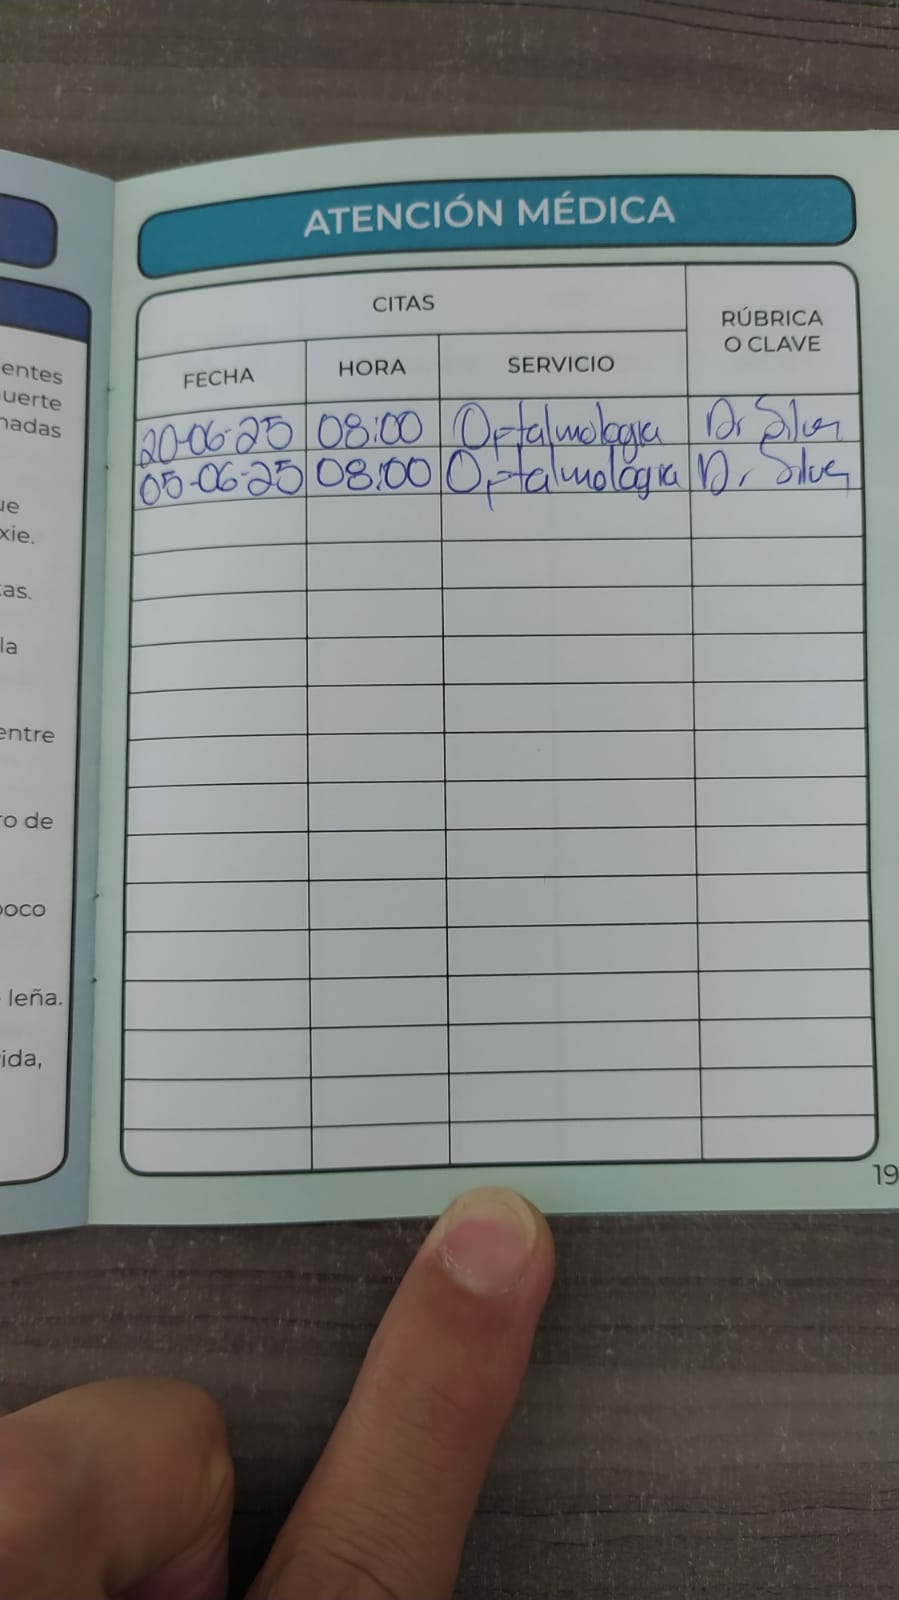 ATENCIÓN MÉDICA
CITAS
RÚBRICA
O CLAVE
FECHA HORA SERVICIO
20-06-25 08:00 Oftalmologia Dr Silva
05-06-25 08:00 Oftalmologia Dr Silva
entes
uerte
nadas
ue
xie.
tas.
la
entre
ro de
poco
leña.
ida,
19